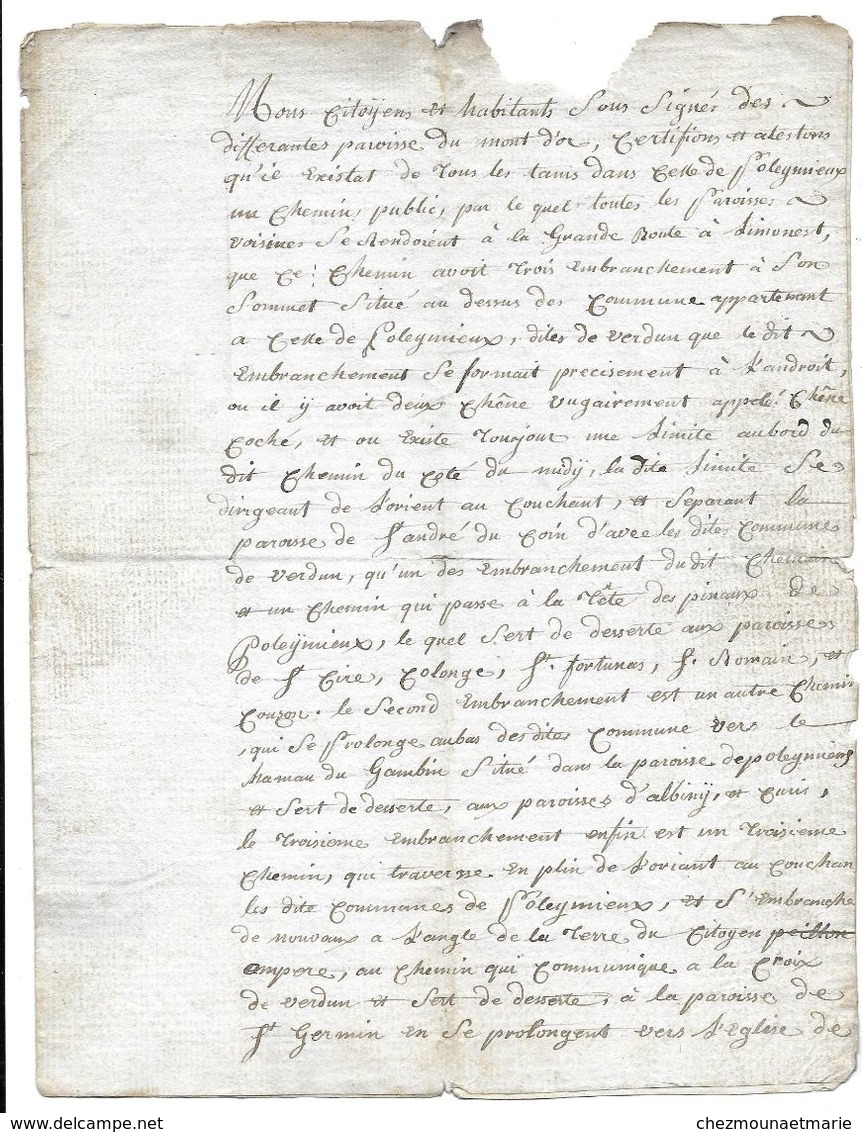 Nous Citoÿens et habitants Sous Signés des ~
differantes paroisse du mont d'or, Certifions et atestons
qu'il Existat de Tous les tams dans Celle de Poleymieux
un Chemin, public, par le quel toutes les Paroisses ~
voisines Se Rendoient à la Grande Route à Limonest,
que Ce Chemin avoit Trois Embranchement à Son
Sommet Situé au dessus des Commune appartenant
a Celle de Poleymieux, dites de verdun que le dit ~
Embranchement Se formait precisement à L'androit,
ou il ÿ avoit deux Chêne vugairement appelé Chêne
Coche, et ou Existe Toujour une Limite au bord du
dit Chemin du Côté du midÿ, la dite Limite Se
dirigeant de L'orient au Couchant, et Separant la
paroisse de St andré du Coin d'avec les dites Commune
de verdun, qu'un des Embranchement du dit Chemin
et un Chemin qui passe à la Tête des pinaux de
Poleÿmieux, le quel Sert de desserte aux paroisses
de St Cire, Colonge, St. fortunas, St. Romain, et
Couzon. le Second Embranchement est un autre Chemin
, qui Se Prolonge au bas des dites Commune vers le
hamau du Gambin Situé dans la paroisse de poleymieux
et Sert de desserte, aux paroisses d'albinÿ, et Curis,
le Troisieme Embranchement enfin est un Troisieme
Chemin, qui traversse En plin de L'oriant au Couchan
les dite Communes de Poleymieux, et S'Embranche
de nouvaux a L'angle de la Terre du Citoyen peillon
ampere, au Chemin qui Communique a la Croix
de verdun et Sert de desserte, à la paroisse de
St Germin en Se prolongent vers L'Eglise de
chezmounaetmarie